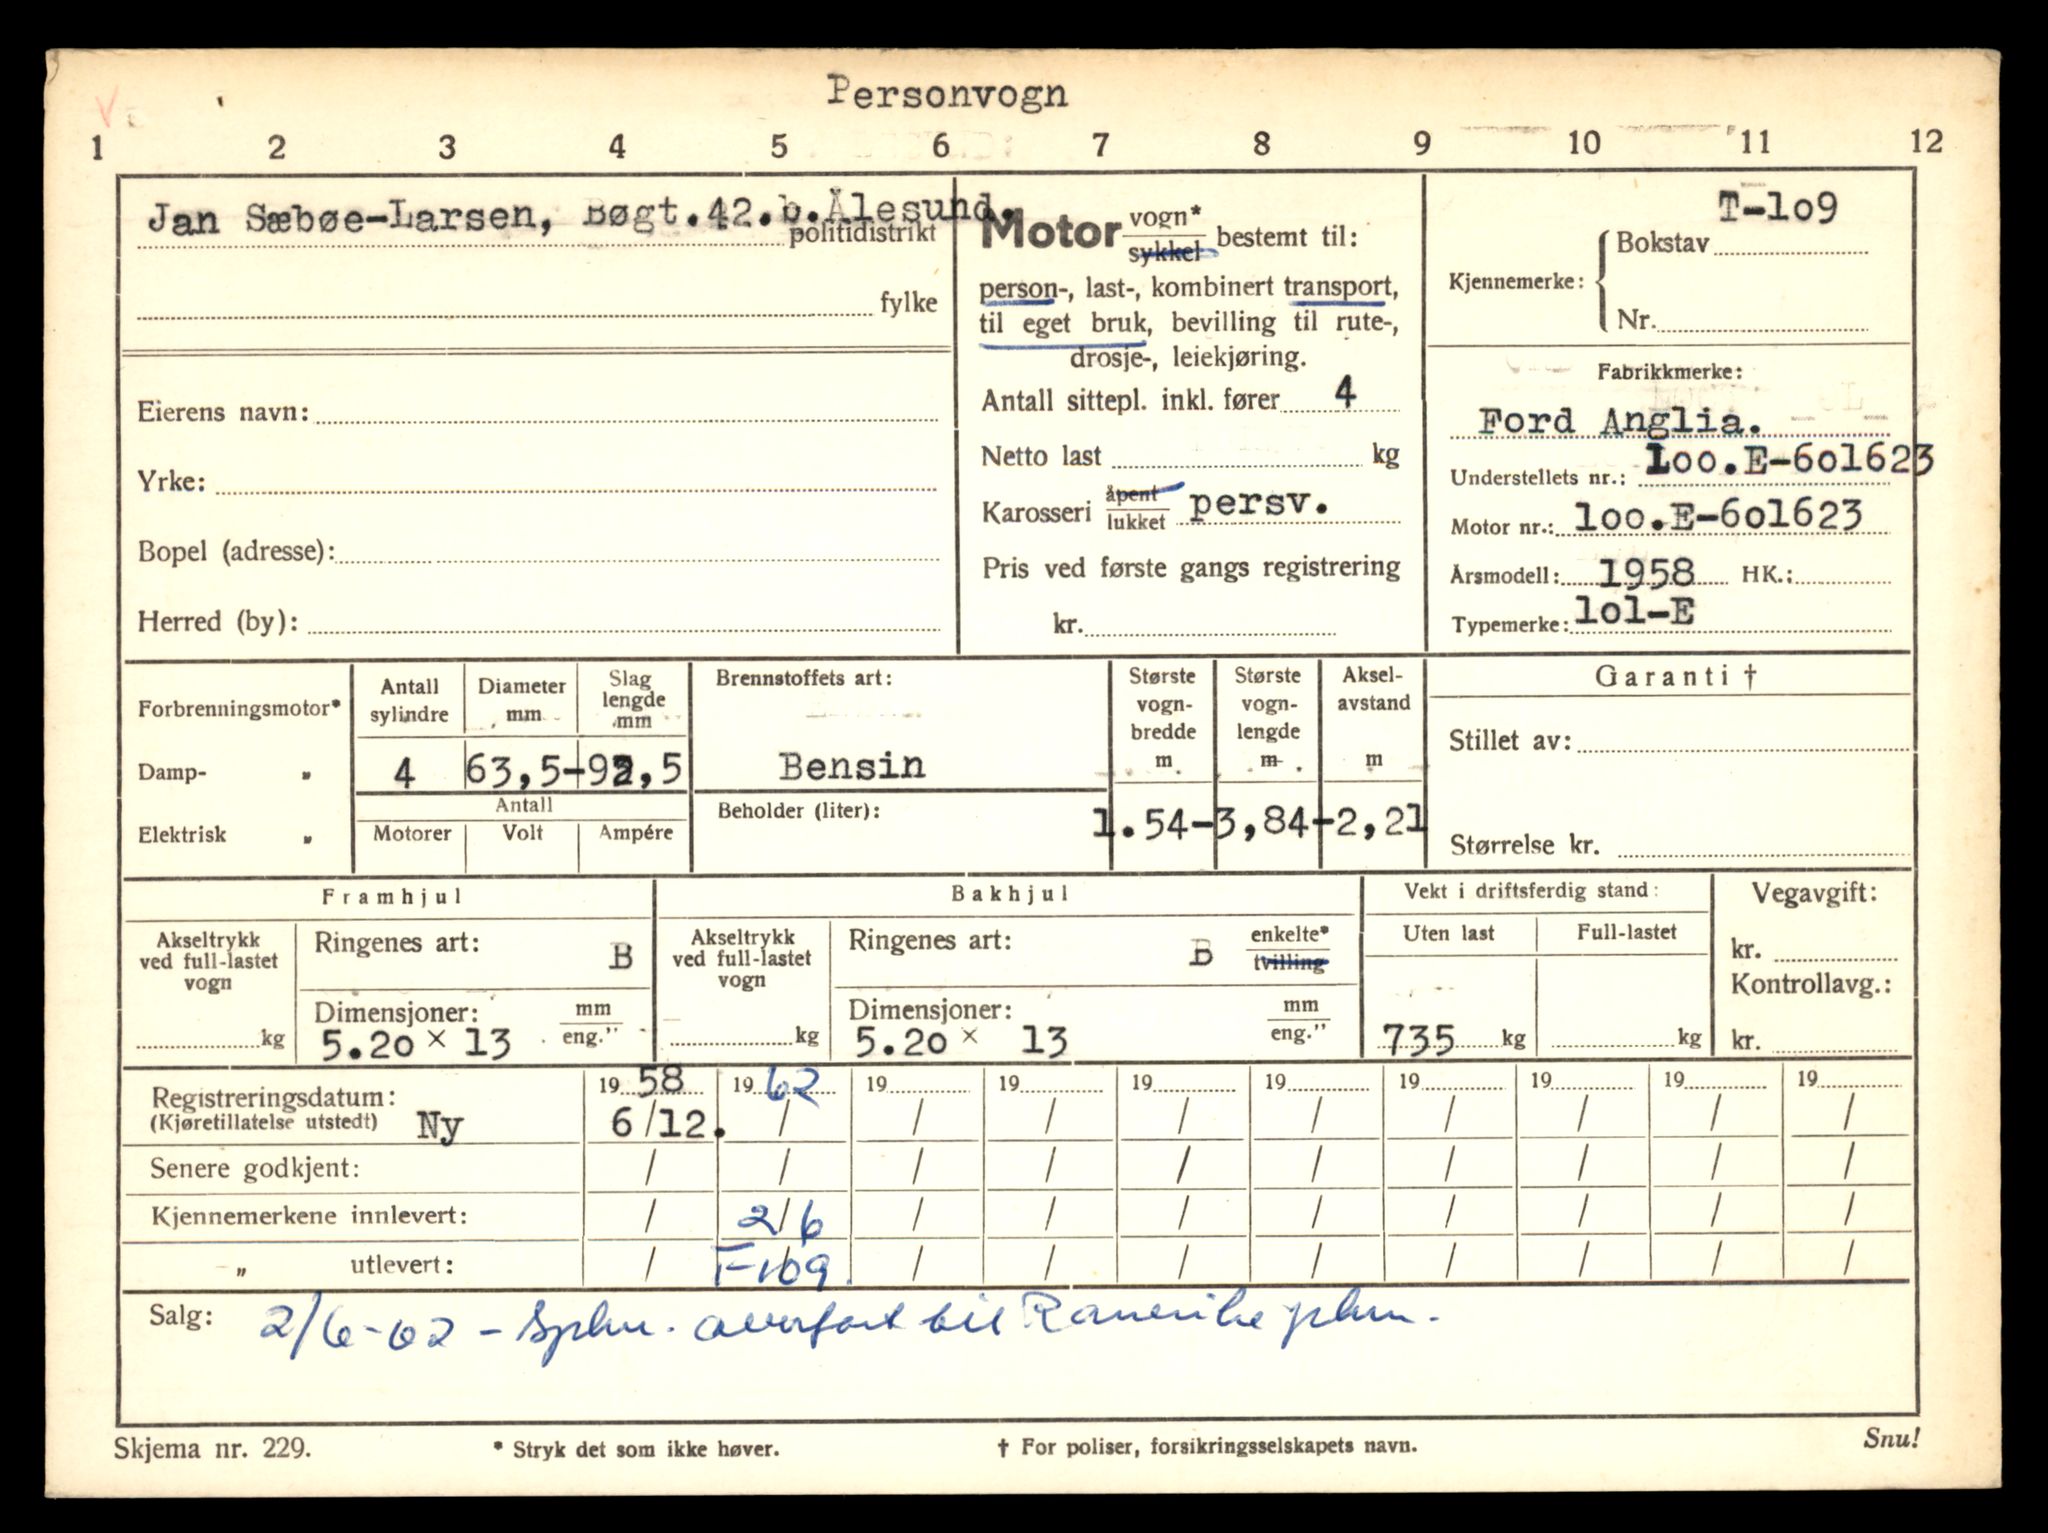 Personvogn
1 2 3 4 5 6 7 8 9 10 11 12
Jan Sæbøe-Larsen, Bøgt.42.b.Ålesund.
politidistrikt
fylke
Eierens navn:
Yrke:
Bopel (adresse):
Herred (by):
Motor vogn* sykkel bestemt til:
person-, last-, kombinert transport,
til eget bruk, bevilling til rute-,
drosje-, leiekjøring.
Antall sittepl. inkl. fører 4
Netto last kg
Karosseri åpent lukket persv.
Pris ved første gangs registrering
kr.
T-lo9
Kjennemerke: Bokstav
Nr.
Fabrikkmerke:
Ford Anglia.
Understellets nr.: loo.E-6o1623
Motor nr.: loo.E-6o1623
Årsmodell: 1958 HK.:
Typemerke: lol-E
Forbrenningsmotor*
Damp- „
Elektrisk „
Antall sylindre
Diameter mm
Slag lengde mm
4 63,5-92,5
Antall
Motorer Volt Ampére
Brennstoffets art:
Bensin
Beholder (liter):
Største vogn- bredde m
Største vogn- lengde m
Aksel- avstand m
1.54-3,84-2,21
Garanti †
Stillet av:
Størrelse kr.
Framhjul
Akseltrykk ved full-lastet vogn
kg
Ringenes art: B
Dimensjoner: mm eng."
5.20 x 13
Bakhjul
Akseltrykk ved full-lastet vogn
kg
Ringenes art: B enkelte* tvilling
Dimensjoner: mm eng."
5.20 x 13
Vekt i driftsferdig stand:
Uten last Full-lastet
735 kg kg
Vegavgift:
kr.
Kontrollavg.:
kr.
Registreringsdatum: 19 58 19 62 19 19 19 19 19 19 19 19
(Kjøretillatelse utstedt) Ny 6/12. / / / / / / / / /
Senere godkjent: / / / / / / / / / /
Kjennemerkene innlevert: / 2/6 / / / / / / / /
„ utlevert: / T-109. / / / / / / / /
Salg: 2/6-62 - Spkm. overført til Romerike pkm.
Skjema nr. 229. * Stryk det som ikke høver. † For poliser, forsikringsselskapets navn. Snu!